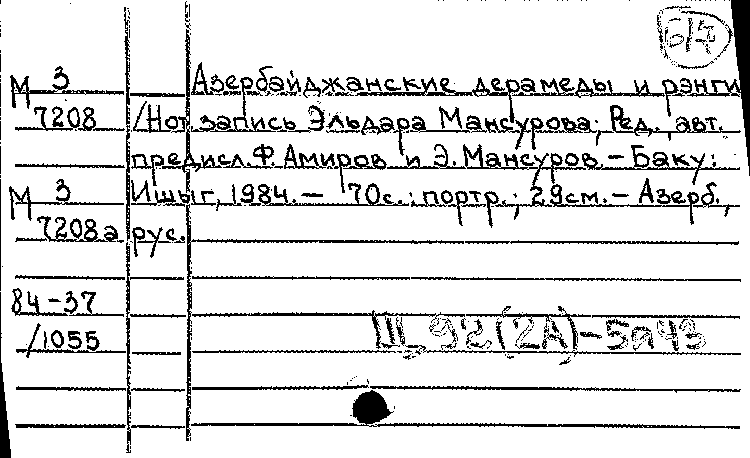 б/д
М 3 Азербайджанские дерамеды и рэнги
7208 /Нот.запись Эльдара Мансурова; Ред., авт.
предисл. Ф. Амиров и Э. Мансуров. – Баку:
М 3 Ишыг, 1984. – 70с.: портр.; 29см. – Азерб.,
7208а рус.
84-37
/1055 Щ 92(2А)-5я43